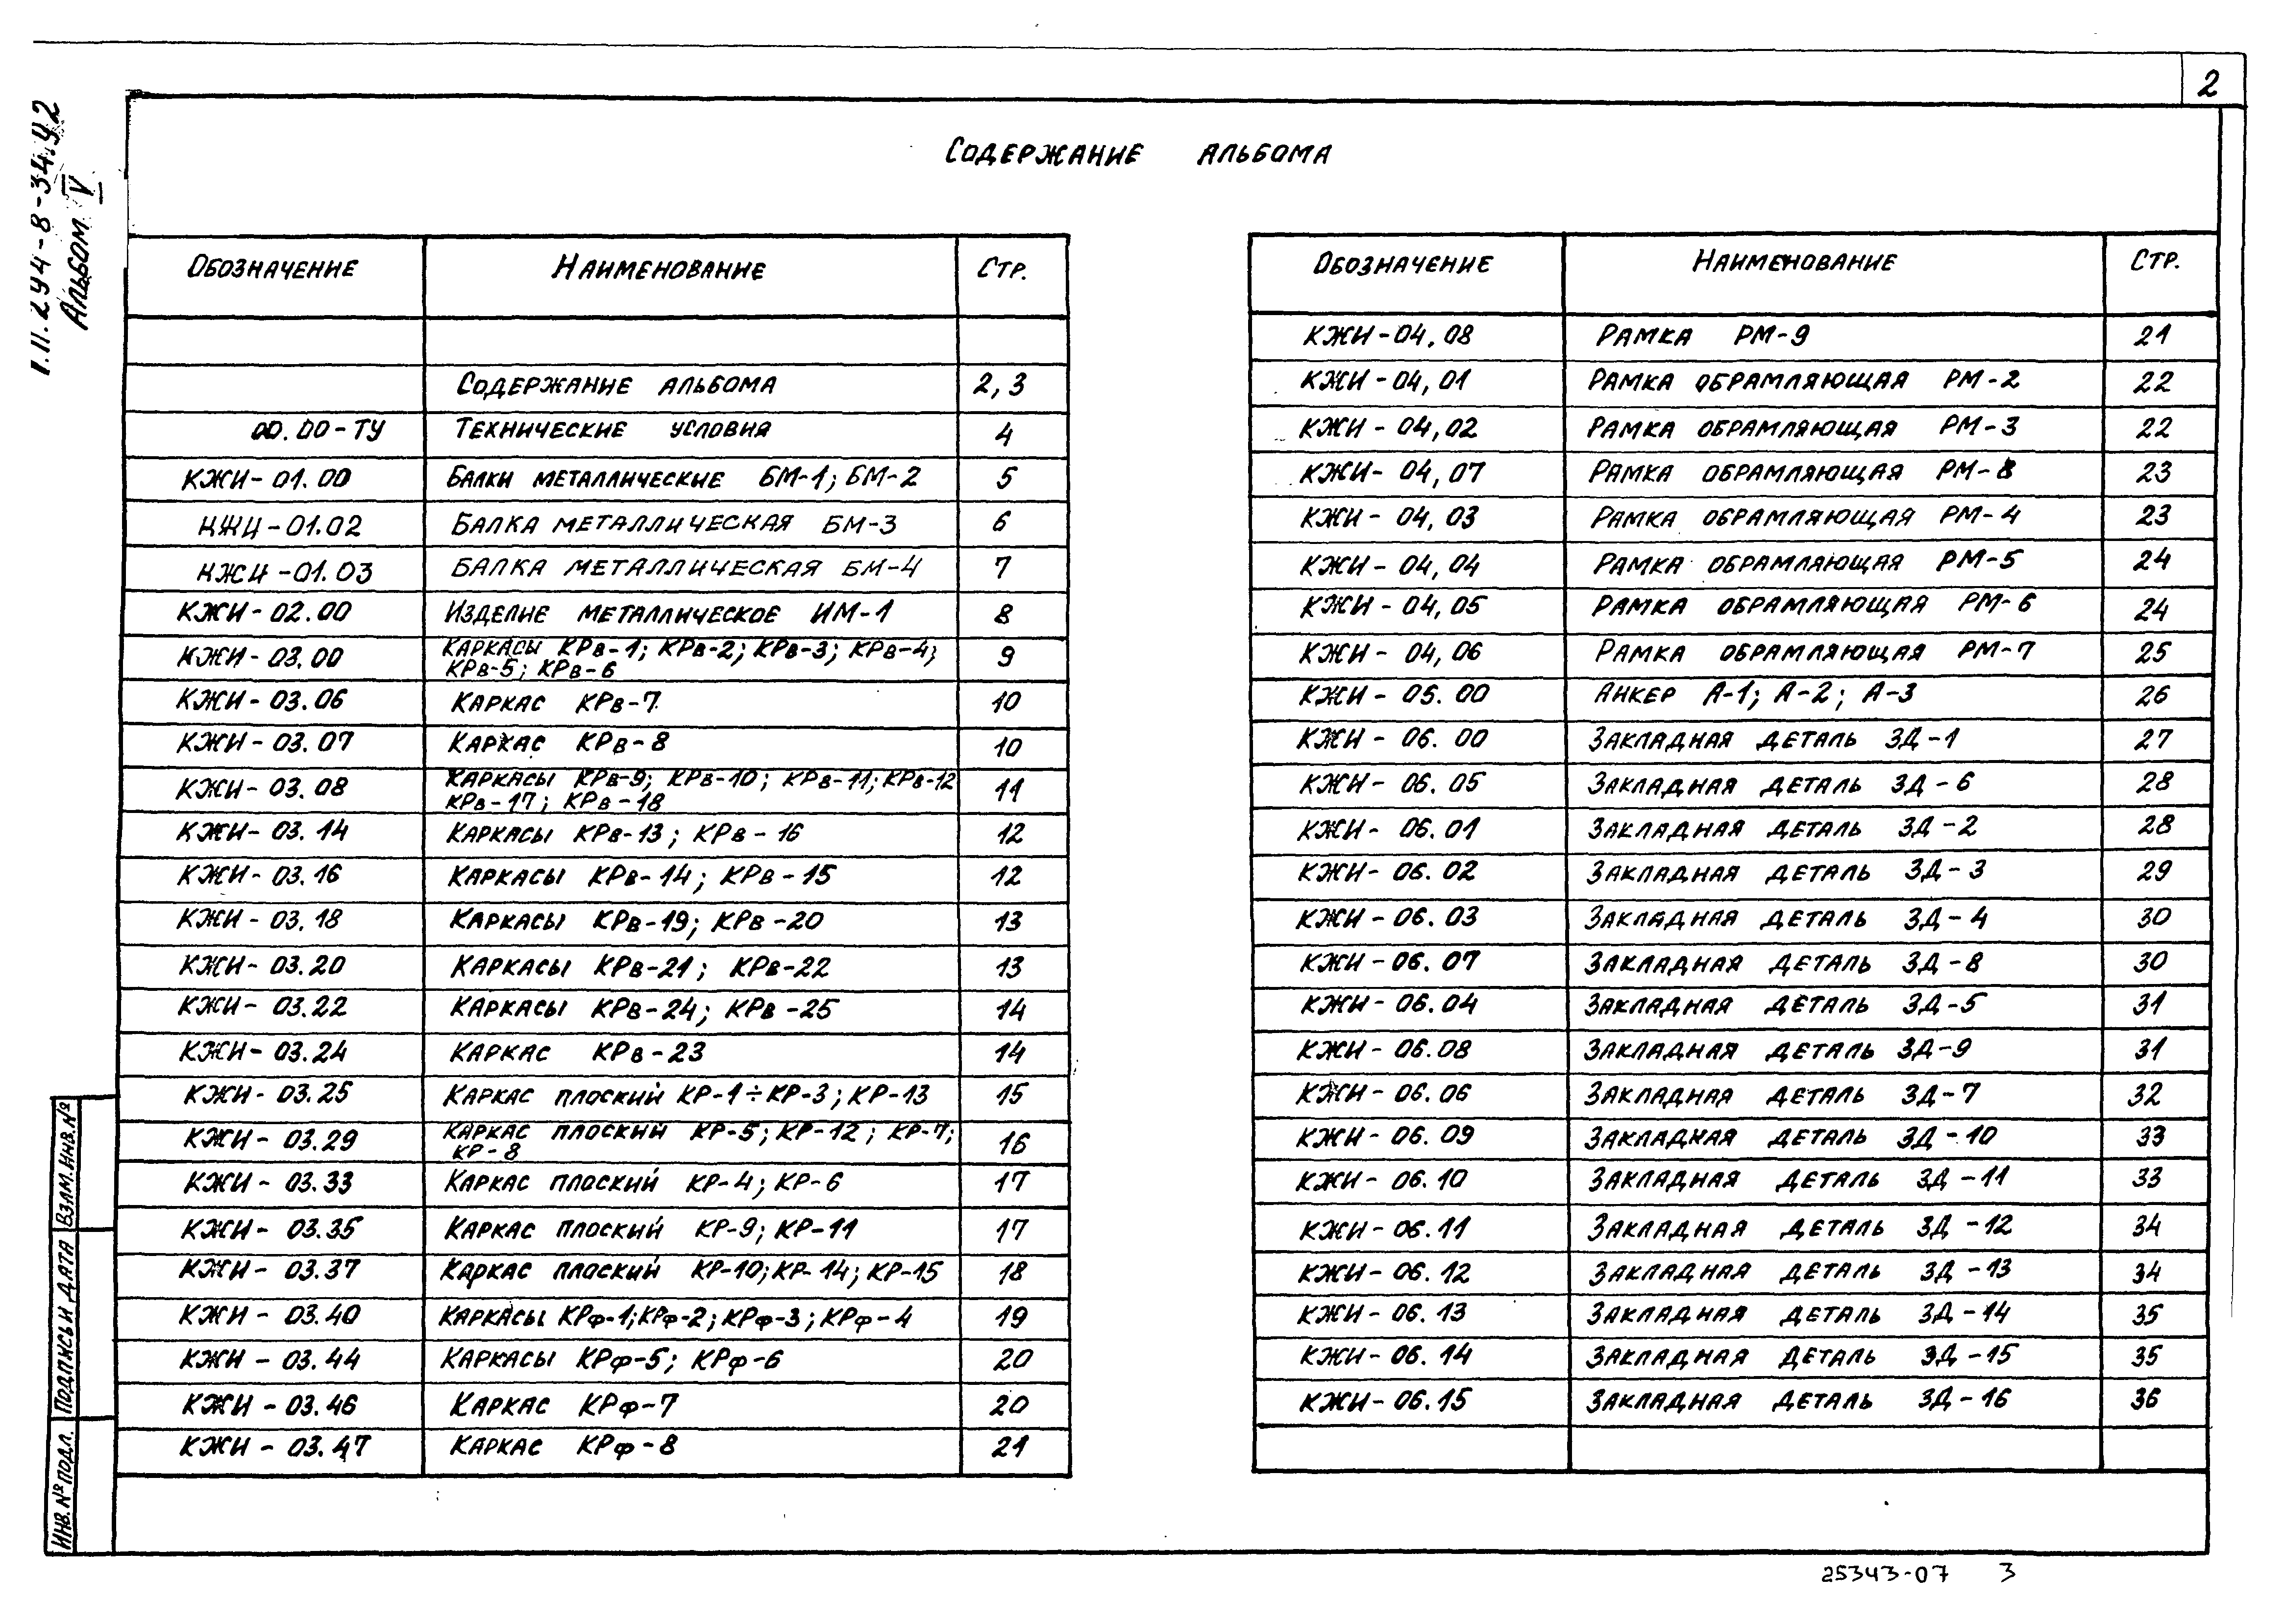 2
А.II.244-8-34.92
Альбом V
Содержание альбома
Обозначение Наименование Стр.
Содержание альбома 2, 3
00.00-ТУ Технические условия 4
КЖИ-01.00 Балки металлические БМ-1; БМ-2 5
КЖИ-01.02 Балка металлическая БМ-3 6
КЖИ-01.03 Балка металлическая БМ-4 7
КЖИ-02.00 Изделие металлическое ИМ-1 8
КЖИ-03.00 Каркасы КРв-1; КРв-2; КРв-3; КРв-4; 9
КРв-5; КРв-6
КЖИ-03.06 Каркас КРв-7 10
КЖИ-03.07 Каркас КРв-8 10
КЖИ-03.08 Каркасы КРв-9; КРв-10; КРв-11; КРв-12 11
КРв-17; КРв-18
КЖИ-03.14 Каркасы КРв-13; КРв-16 12
КЖИ-03.16 Каркасы КРв-14; КРв-15 12
КЖИ-03.18 Каркасы КРв-19; КРв-20 13
КЖИ-03.20 Каркасы КРв-21; КРв-22 13
КЖИ-03.22 Каркасы КРв-24; КРв-25 14
КЖИ-03.24 Каркас КРв-23 14
КЖИ-03.25 Каркас плоский КР-1÷КР-3; КР-13 15
КЖИ-03.29 Каркас плоский КР-5; КР-12; КР-7; 16
КР-8
КЖИ-03.33 Каркас плоский КР-4; КР-6 17
КЖИ-03.35 Каркас плоский КР-9; КР-11 17
КЖИ-03.37 Каркас плоский КР-10; КР-14; КР-15 18
КЖИ-03.40 Каркасы КРф-1; КРф-2; КРф-3; КРф-4 19
КЖИ-03.44 Каркасы КРф-5; КРф-6 20
КЖИ-03.46 Каркас КРф-7 20
КЖИ-03.47 Каркас КРф-8 21
Обозначение Наименование Стр.
КЖИ-04,08 Рамка РМ-9 21
КЖИ-04,01 Рамка обрамляющая РМ-2 22
КЖИ-04,02 Рамка обрамляющая РМ-3 22
КЖИ-04,07 Рамка обрамляющая РМ-8 23
КЖИ-04,03 Рамка обрамляющая РМ-4 23
КЖИ-04,04 Рамка обрамляющая РМ-5 24
КЖИ-04,05 Рамка обрамляющая РМ-6 24
КЖИ-04,06 Рамка обрамляющая РМ-7 25
КЖИ-05.00 Анкер А-1; А-2; А-3 26
КЖИ-06.00 Закладная деталь ЗД-1 27
КЖИ-06.05 Закладная деталь ЗД-6 28
КЖИ-06.01 Закладная деталь ЗД-2 28
КЖИ-06.02 Закладная деталь ЗД-3 29
КЖИ-06.03 Закладная деталь ЗД-4 30
КЖИ-06.07 Закладная деталь ЗД-8 30
КЖИ-06.04 Закладная деталь ЗД-5 31
КЖИ-06.08 Закладная деталь ЗД-9 31
КЖИ-06.06 Закладная деталь ЗД-7 32
КЖИ-06.09 Закладная деталь ЗД-10 33
КЖИ-06.10 Закладная деталь ЗД-11 33
КЖИ-06.11 Закладная деталь ЗД-12 34
КЖИ-06.12 Закладная деталь ЗД-13 34
КЖИ-06.13 Закладная деталь ЗД-14 35
КЖИ-06.14 Закладная деталь ЗД-15 35
КЖИ-06.15 Закладная деталь ЗД-16 36
Взам.инв.№
Подпись и дата
Инв.№ подл.
25343-07 3